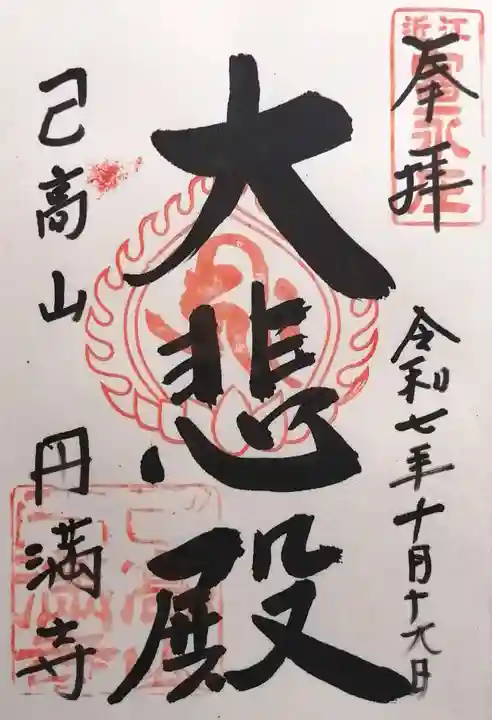 奉拝
令和七年十月十六日
大悲殿
己高山 円満寺
近江